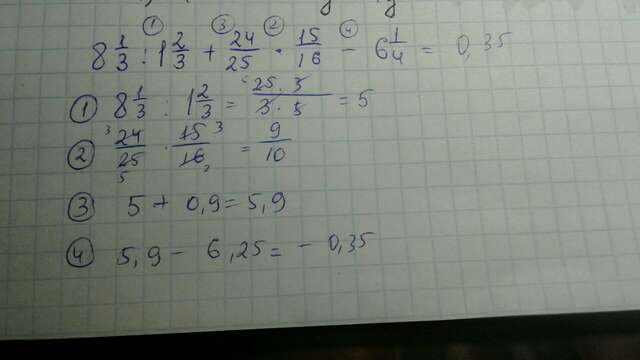 ① ③ ② ④
8 1/3 : 1 2/3 + 24/25 · 15/16 - 6 1/4 = 0,35
① 8 1/3 : 1 2/3 = 25·3/3·5 = 5
② 24/25 · 15/16 = 9/10
③ 5 + 0,9 = 5,9
④ 5,9 - 6,25 = - 0,35